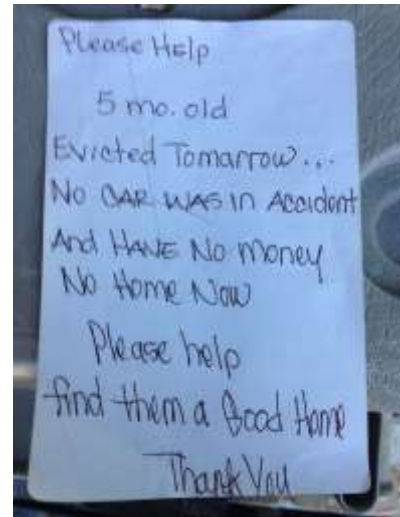 Please Help
5 mo. old
Evicted Tomarrow...
No CAR WAS in Accident
And HAVE No Money
No Home Now
Please help
find them a Good Home
Thank You